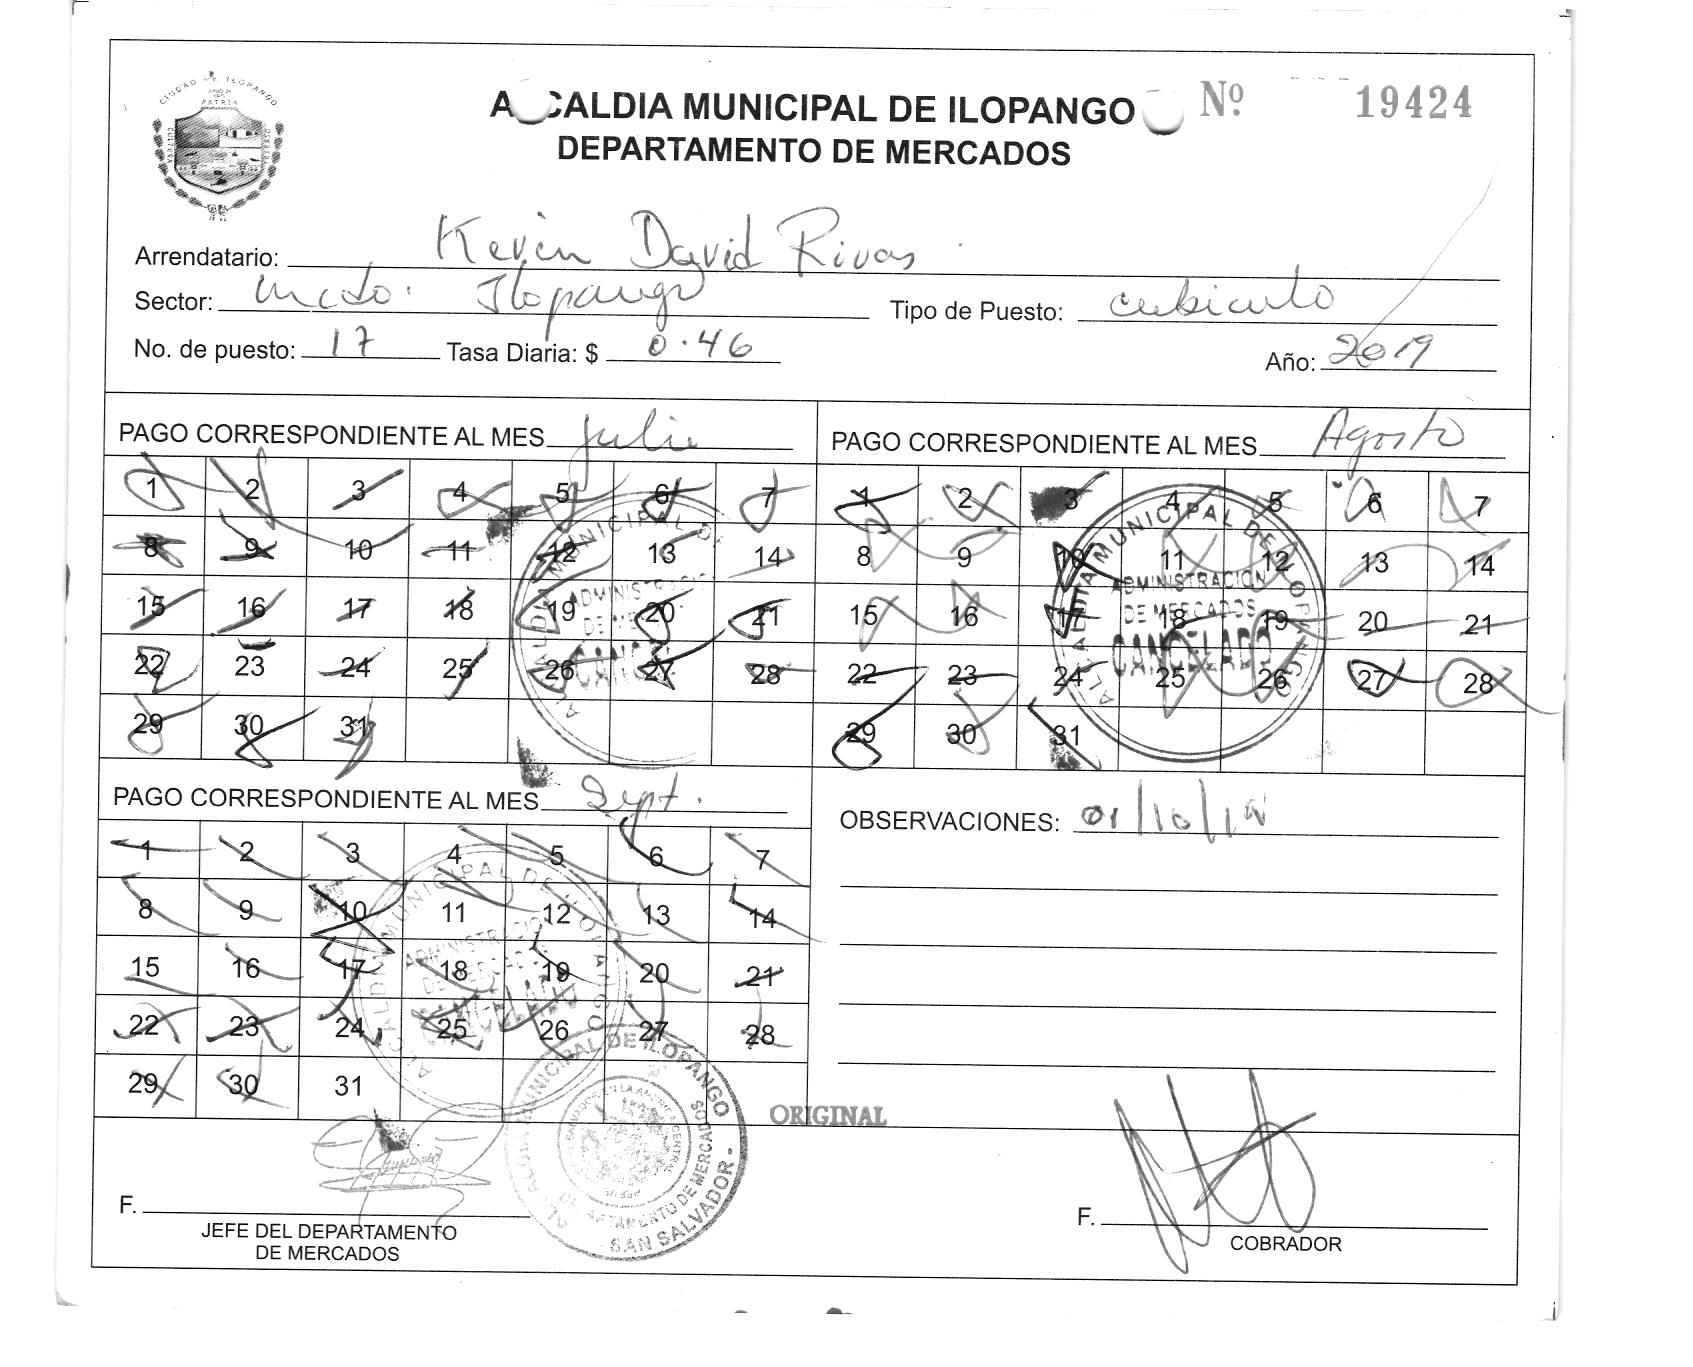 CIUDAD DE ILOPANGO
PATRIA
ALCALDIA MUNICIPAL DE ILOPANGO
DEPARTAMENTO DE MERCADOS
Nº 19424
Arrendatario: Kevin David Rivas
Sector: Mcdo. Ilopango Tipo de Puesto: cubiculo
No. de puesto: 17 Tasa Diaria: $ 0.46 Año: 2019
PAGO CORRESPONDIENTE AL MES Julio
1 2 3 4 5 6 7
8 9 10 11 12 13 14
15 16 17 18 19 20 21
22 23 24 25 26 27 28
29 30 31
PAGO CORRESPONDIENTE AL MES Agosto
1 2 3 4 5 6 7
8 9 10 11 12 13 14
15 16 17 18 19 20 21
22 23 24 25 26 27 28
29 30 31
ALCALDIA MUNICIPAL DE ILOPANGO
ADMINISTRACION
DE MERCADOS
CANCELADO
PAGO CORRESPONDIENTE AL MES Sept.
1 2 3 4 5 6 7
8 9 10 11 12 13 14
15 16 17 18 19 20 21
22 23 24 25 26 27 28
29 30 31
OBSERVACIONES: 01/10/19
ALCALDIA MUNICIPAL DE ILOPANGO
DEPARTAMENTO DE MERCADOS
SAN SALVADOR
ORIGINAL
F.
JEFE DEL DEPARTAMENTO
DE MERCADOS
F.
COBRADOR